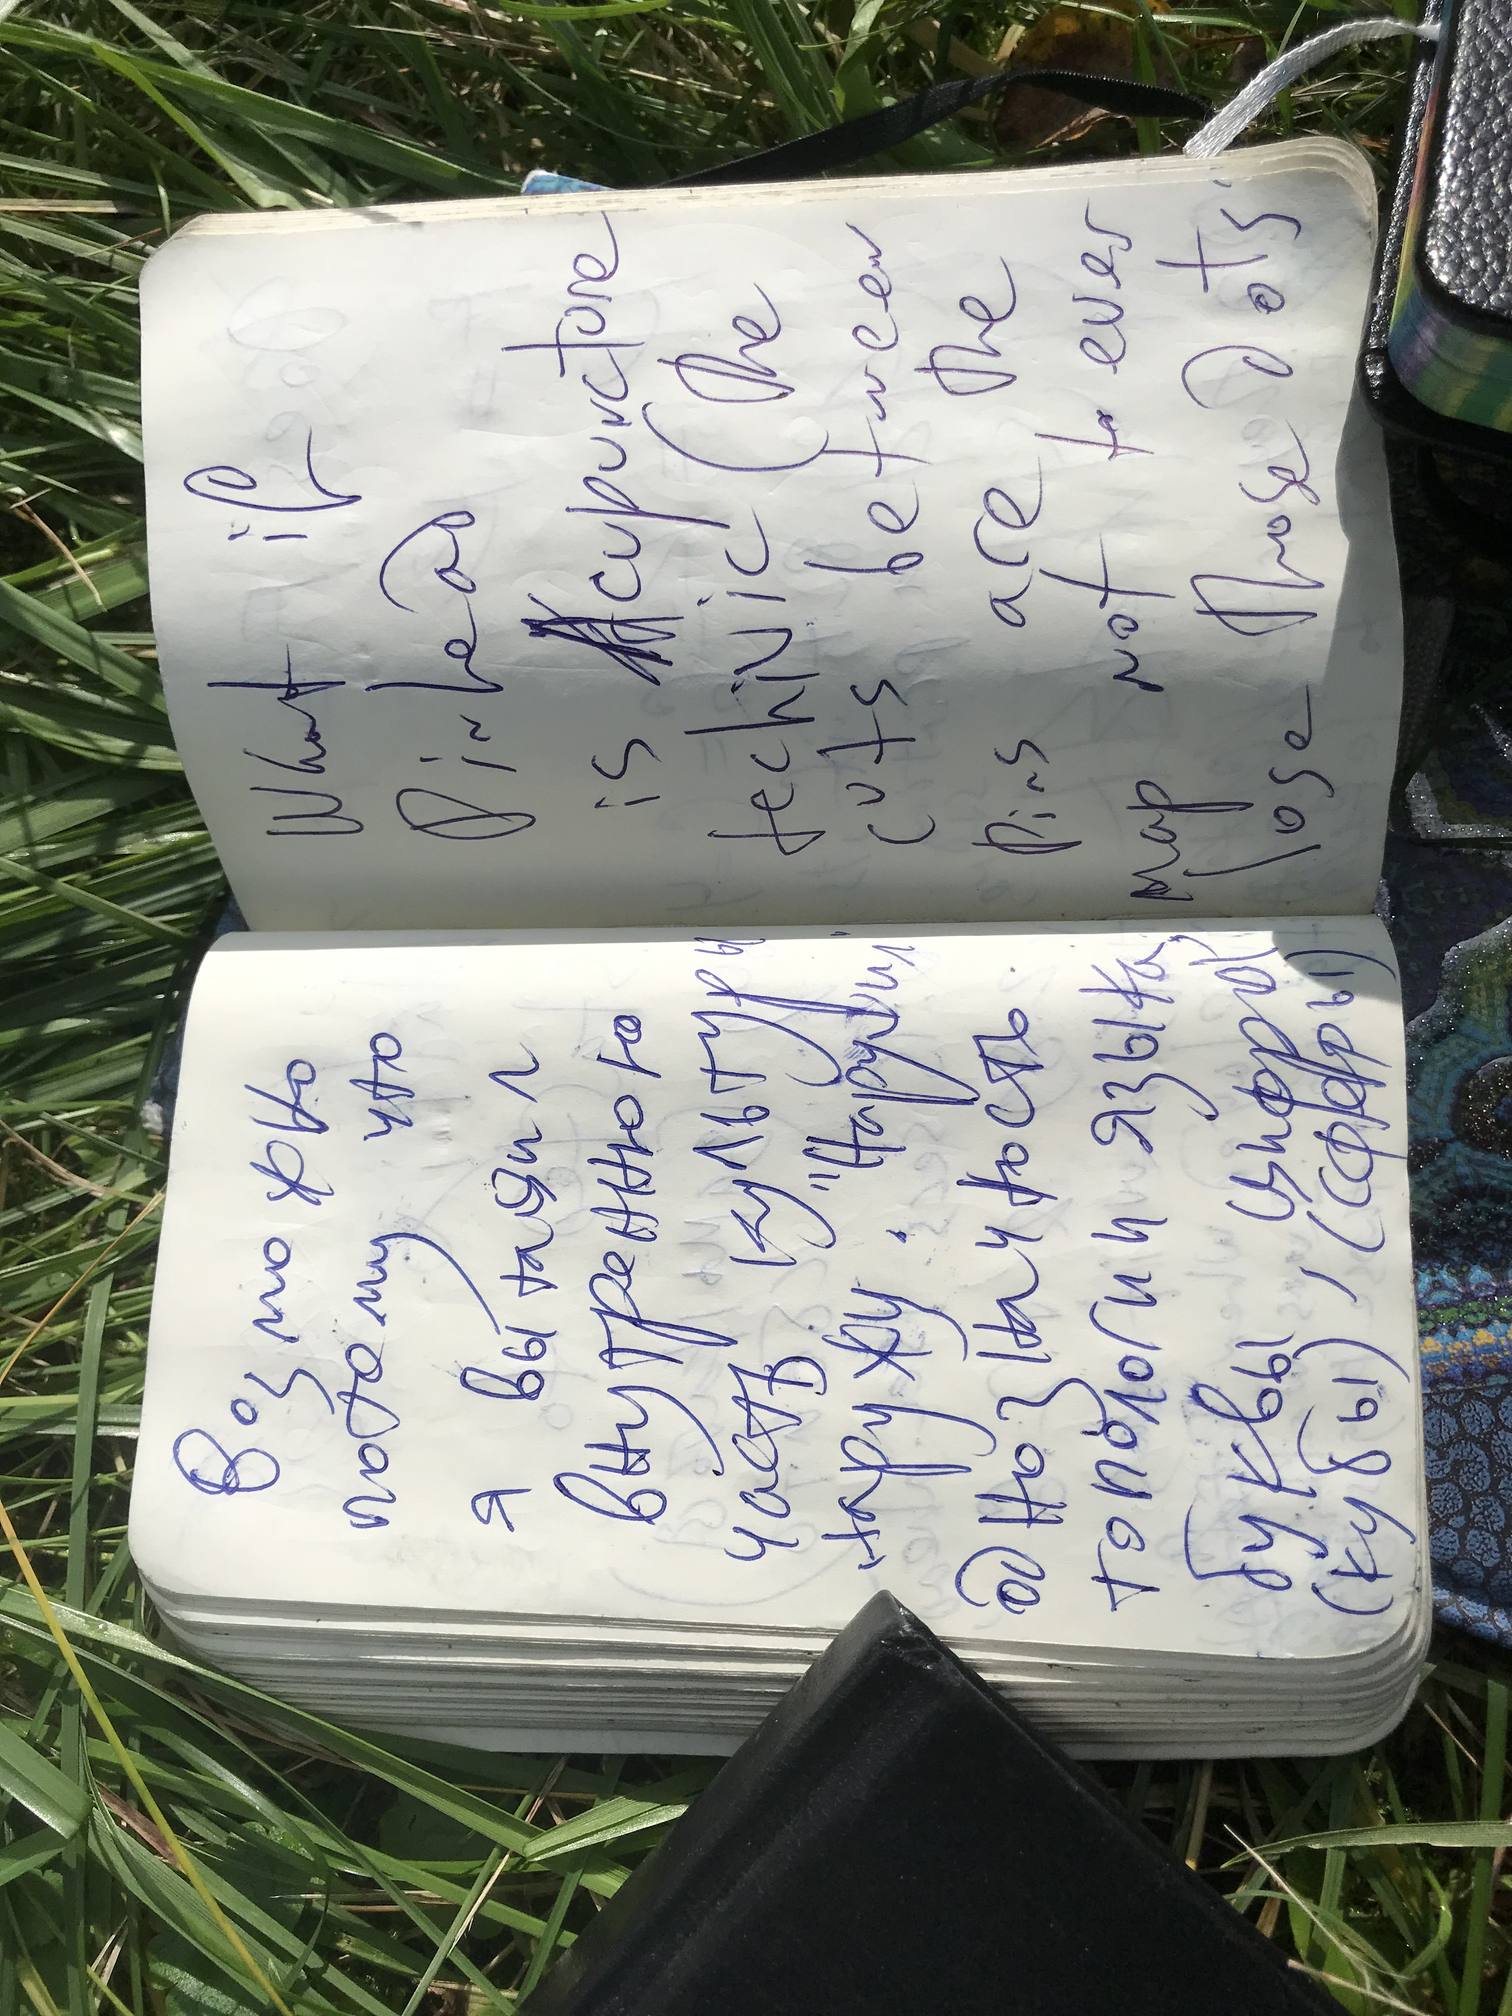 Возможно
потому что
я вытащил
внутреннюю
часть культуры
наружу. "Наружил"
@ Но значность
топологии языка,
буквы цифры(
(кубы), (сферы)
What if
PinHead
is Acupuncture
techinic (the
cuts between
Pins are the
map not to ever
lose those Dots.